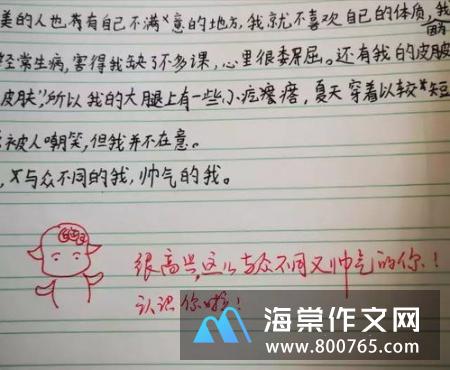 美的人也有自己不满意的地方,我就不喜欢自己的体质,我
因为
经常生病,害得我缺了不多课,心里很委屈。还有我的皮肤
皮肤",所以我的大腿上有一些小疙瘩瘩,夏天穿着以较短
被人嘲笑,但我并不在意。
,与众不同的我,帅气的我。
很高兴,这么与众不同又帅气的你!
认识你啦!
海棠作文网
www.800765.com